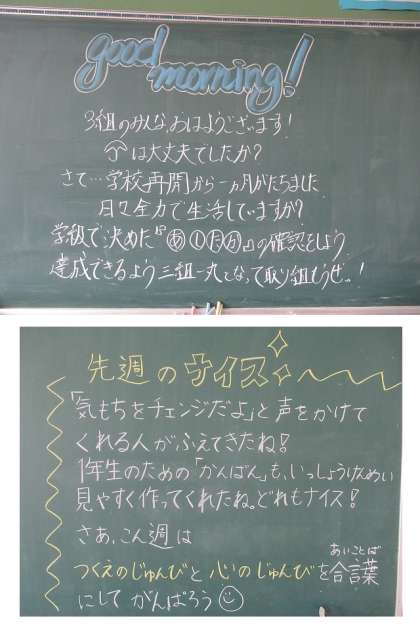 good
morning!
3組のみんな、おはようございます!
は大丈夫でしたか?
さて…学校再開から一ヵ月がたちました
日々全力で生活していますか?
学級で決めた『あしたか』の確認をしよう
達成できるよう三組一丸となって取り組もうぜっ!
先週のナイス
「気もちをチェンジだよ」と声をかけて
くれる人がふえてきたね!
1年生のための「かんばん」も、いっしょうけんめい
見やすく作ってくれたね。どれもナイス!
さあ、こん週は
あいことば
つくえのじゅんびと心のじゅんびを合言葉
にしてがんばろう